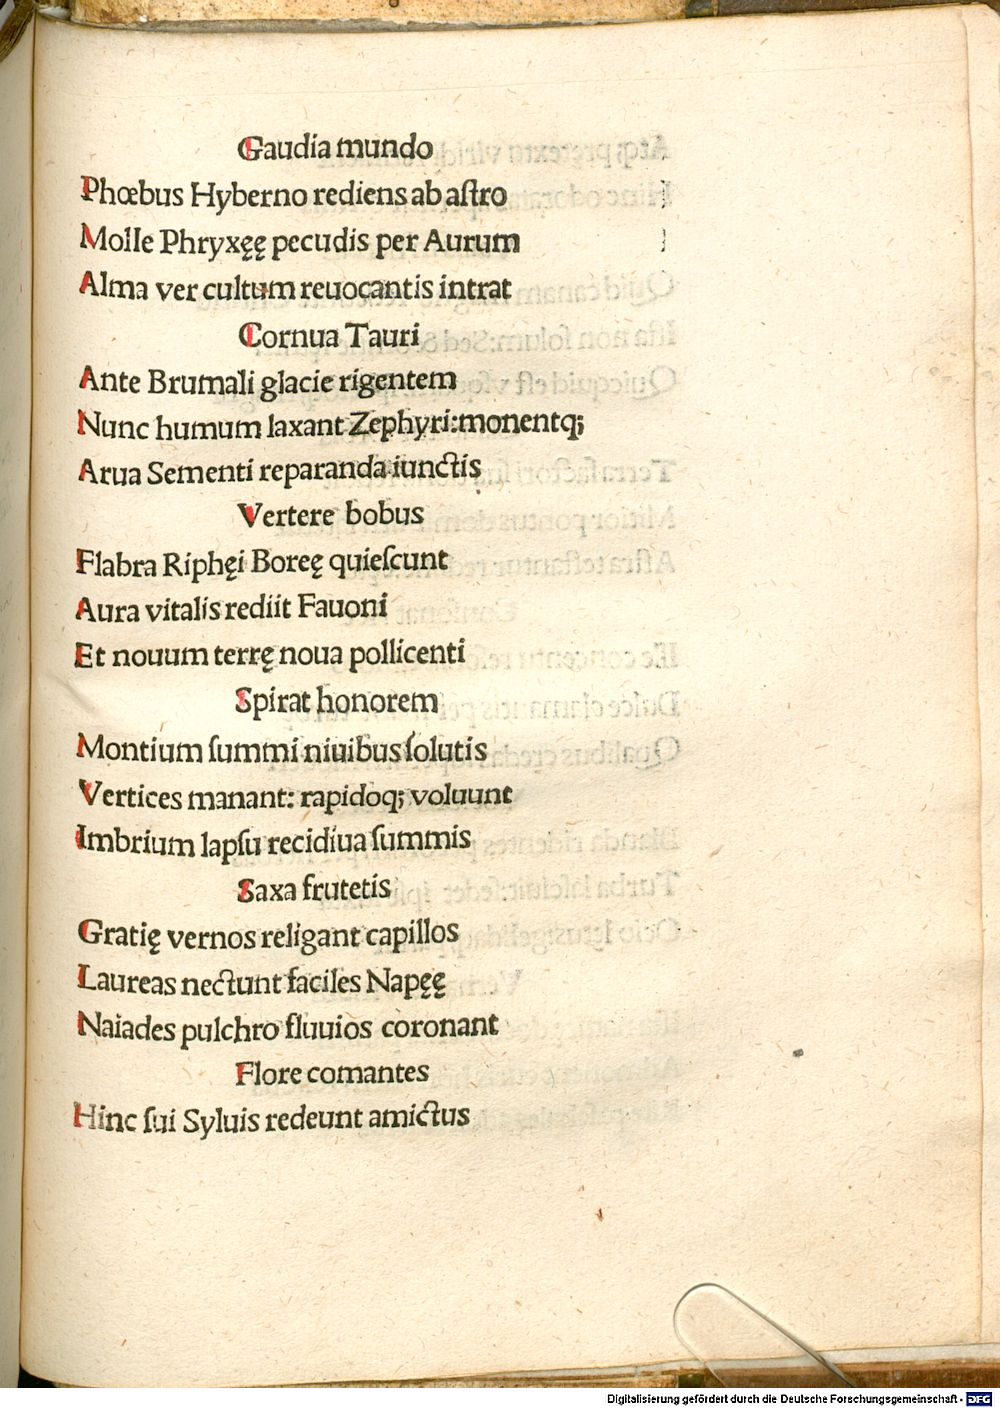 Gaudia mundo
Phœbus Hyberno rediens ab aſtro
Molle Phryxęę pecudis per Aurum
Alma ver cultum reuocantis intrat
Cornua Tauri
Ante Brumali glacie rigentem
Nunc humum laxant Zephyri:monentq;
Arua Sementi reparanda iunctis
Vertere bobus
Flabra Riphęi Boreę quieſcunt
Aura vitalis rediit Fauoni
Et nouum terrę noua pollicenti
Spirat honorem
Montium ſummi niuibus ſolutis
Vertices manant: rapidoq; voluunt
Imbrium lapſu recidiua ſummis
Saxa frutetis
Gratię vernos religant capillos
Laureas nectunt faciles Napęę
Naiades pulchro fluuios coronant
Flore comantes
Hinc ſui Syluis redeunt amictus
Digitalisierung gefördert durch die Deutsche Forschungsgemeinschaft - DFG